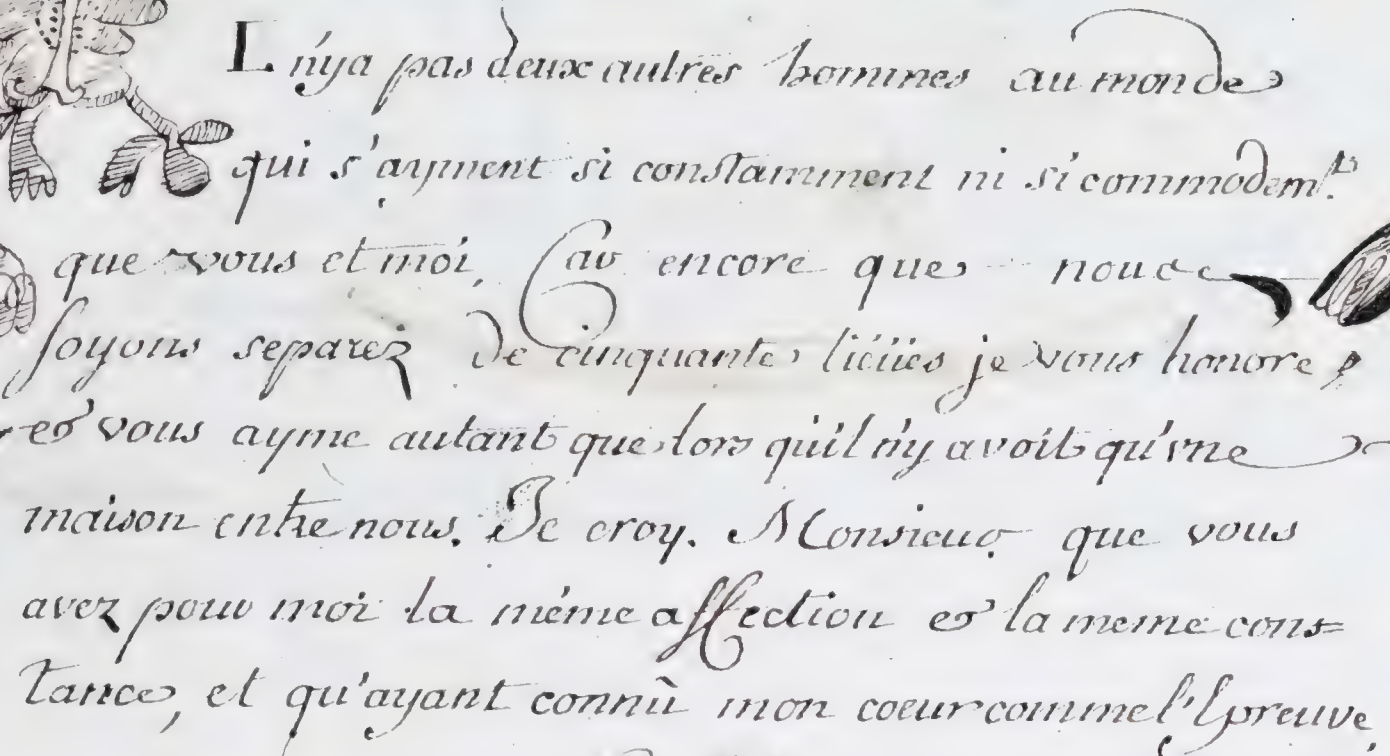 L n'ya pas deux autres hommes au monde
qui s'ayment si constamment ni si commodemt.
que vous et moi, Car encore que nous
soyons separez de cinquante liëües je vous honore,
et vous ayme autant que lors qu'il n'y avoit qu'vne
maison entre nous. Je croy. Monsieur. que vous
avez pour moi la même affection et la meme cons=
tance, et qu'ayant connû mon coeur comme l'Epreuve,